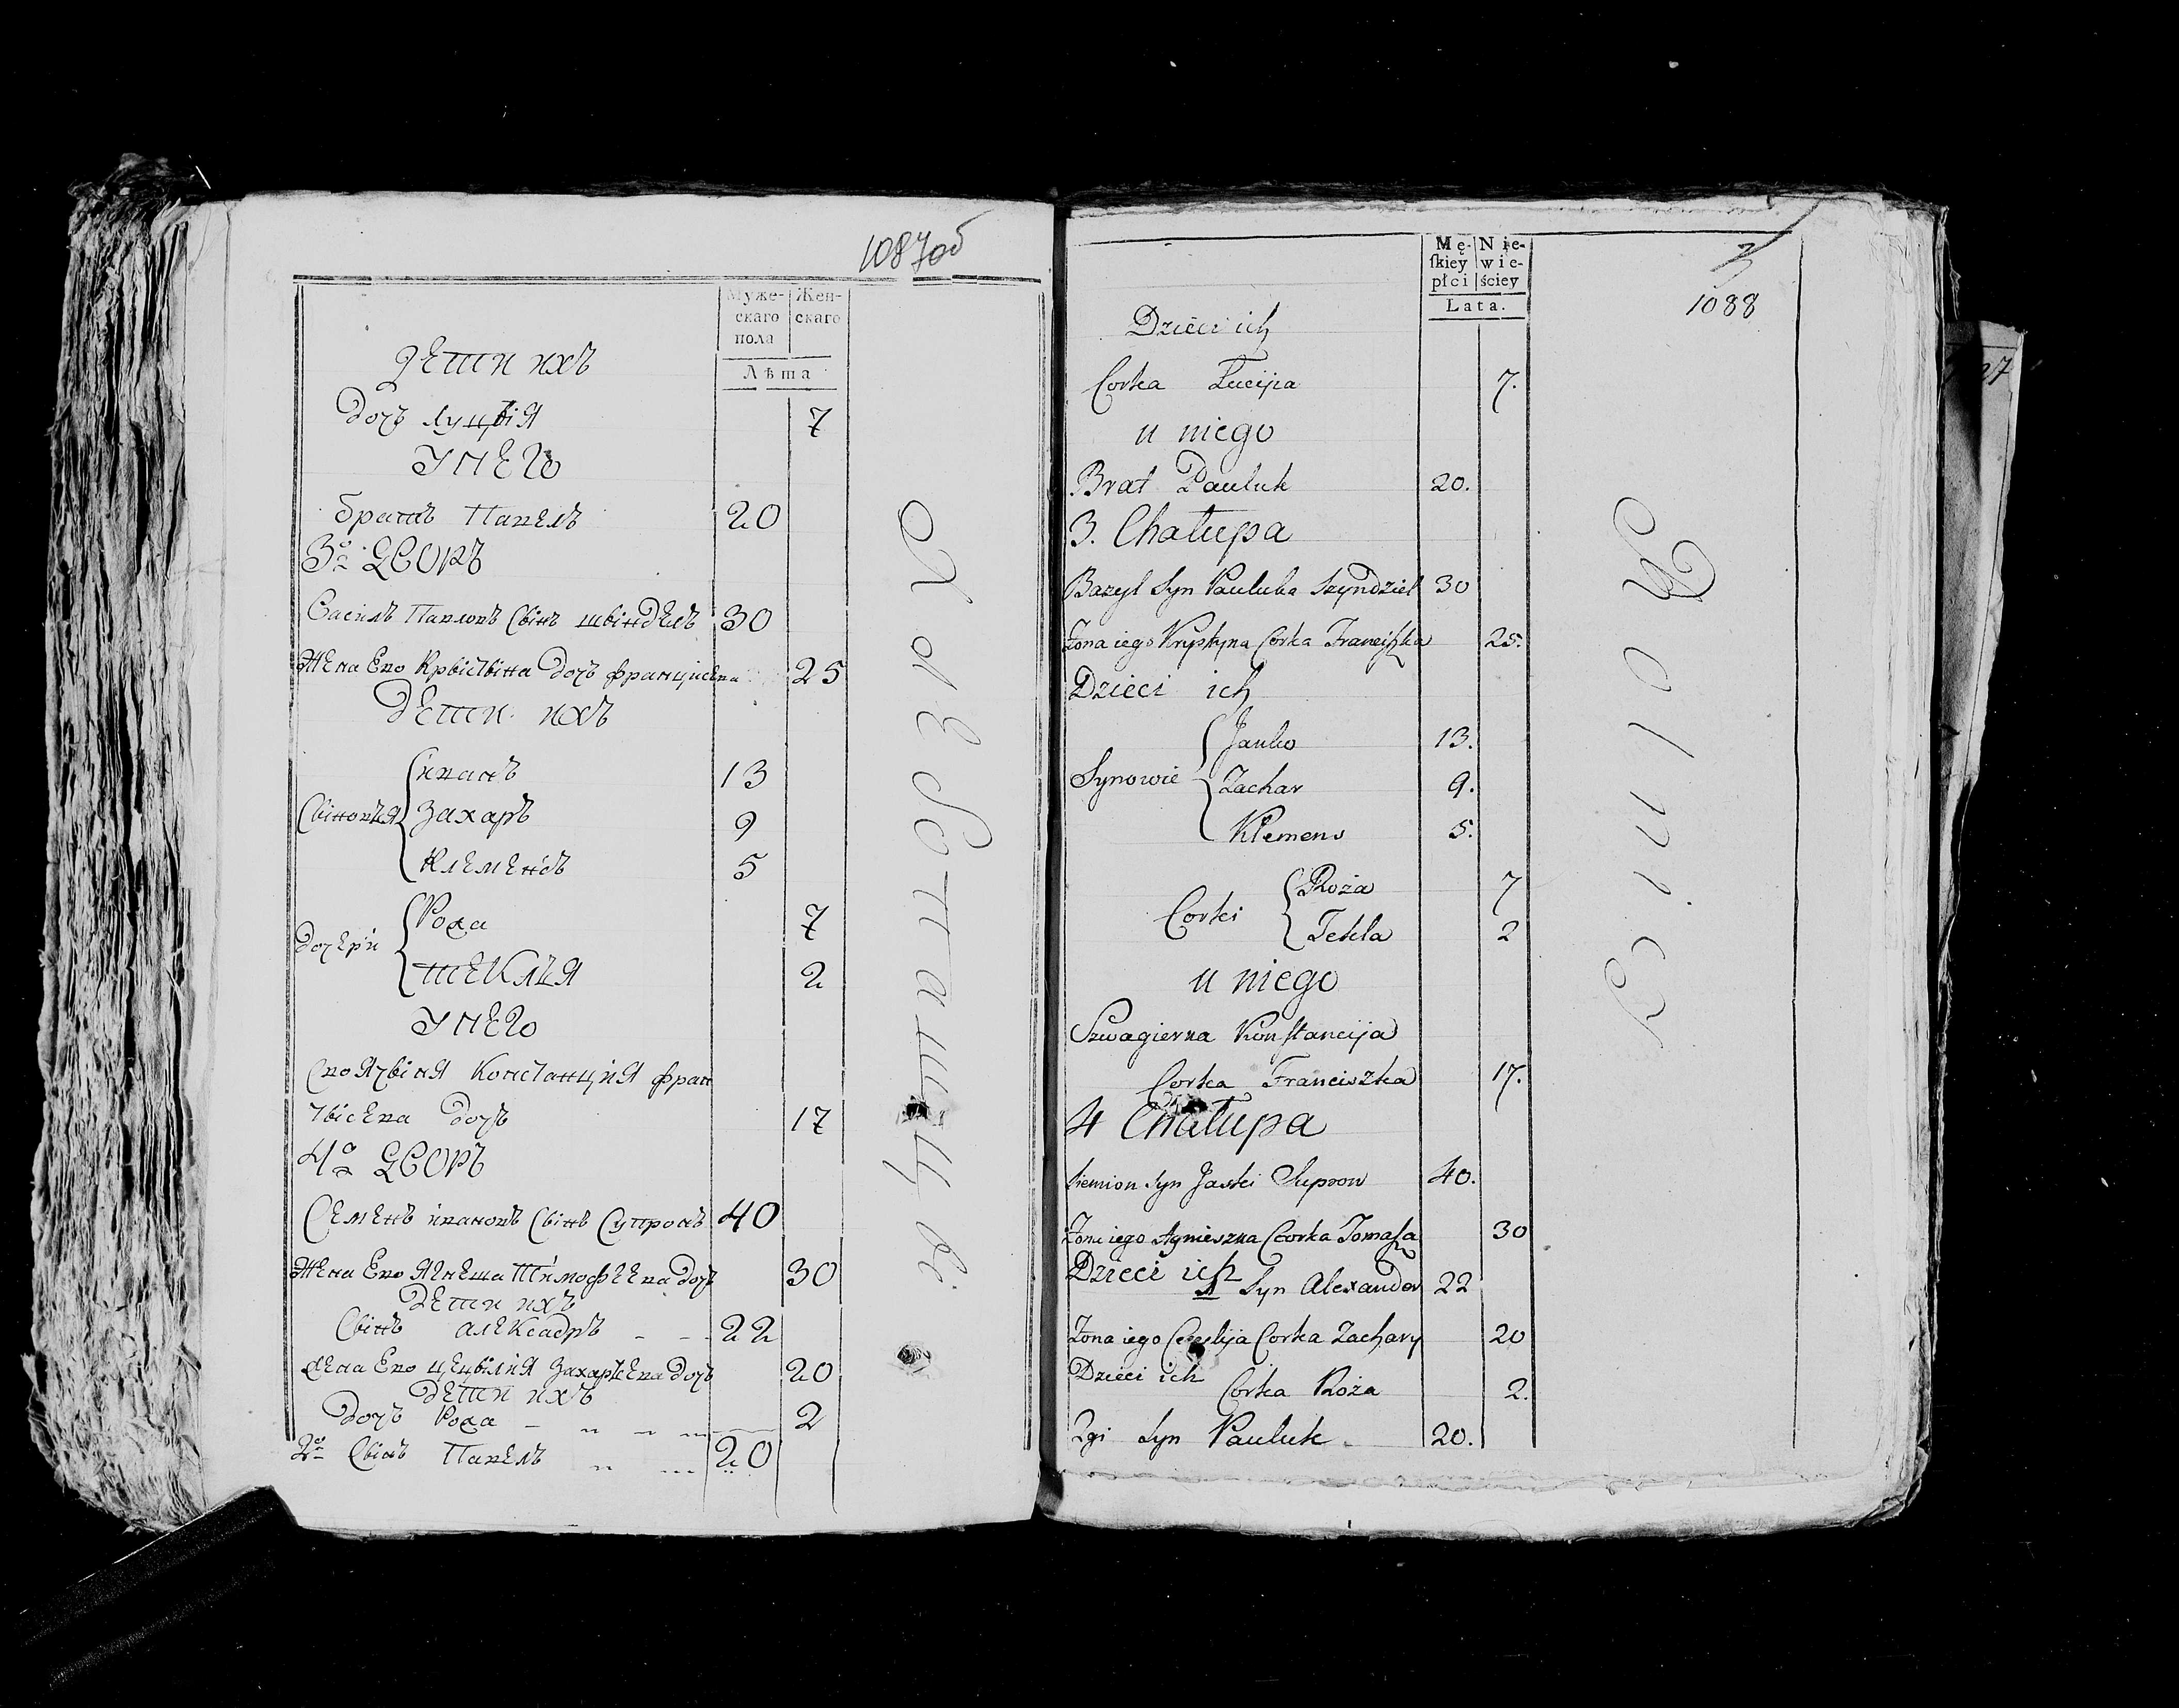 1087об
Муже-
скаго
пола
Жен-
скаго
Лѣта
Дети ихъ
Дочь Луцыя 7
У него
братъ Павелъ 20
3й Дворъ
Василь Павловъ Сынъ шындзель 30
Жена Его Крыстына Дочь францисева 25
Дети ихъ
Иванъ 13
Сыновья Захаръ 9
Клеменсъ 5
Рожа 7
Дочери
Текля 2
У него
Своячыня Констанция фран
чысева Дочь 17
4й Дворъ
Семенъ ивановъ Сынъ Супронъ 40
Жена Его Агнеша Тимофеева Дочь 30
Дети ихъ
Сынъ алексадръ 22
жена Его цецылия Захарьева Дочь 20
Дети ихъ
Дочь Рожа 2
2й Сынъ Павелъ 20
Мę-
skiey
płci
Nie-
wie-
ściey
Lata.
3
1088
Dzieci ich
Corka Łucyia 7.
u niego
Brat Pauluk 20.
3. Chałupa
Bazyl Syn Pauluka Szyndziel 30
Zona iego Krystyna Corka Franciszka 25.
Dzieci ich
Janko 13.
Synowie Zachar 9.
Klemens 5.
Roża 7
Corki
Tekla 2
u niego
Szwagierka Konstancija
Corka Franciszka 17.
4 Chałupa
Siemion Syn Jaski Supron 40.
Zona iego Agnieszka Corka Tomasza 30
Dzieci ich
1 Syn Alexander 22
Zona iego Cecylija Corka Zachary 20
Dzieci ich
Corka Roża 2.
2gi Syn Pauluk 20.
Rolnicy